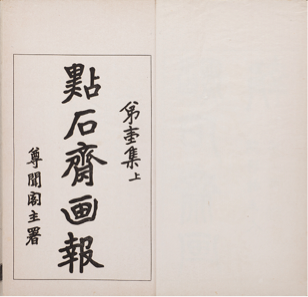 第壹集上
點石齋画報
尊聞閣主署